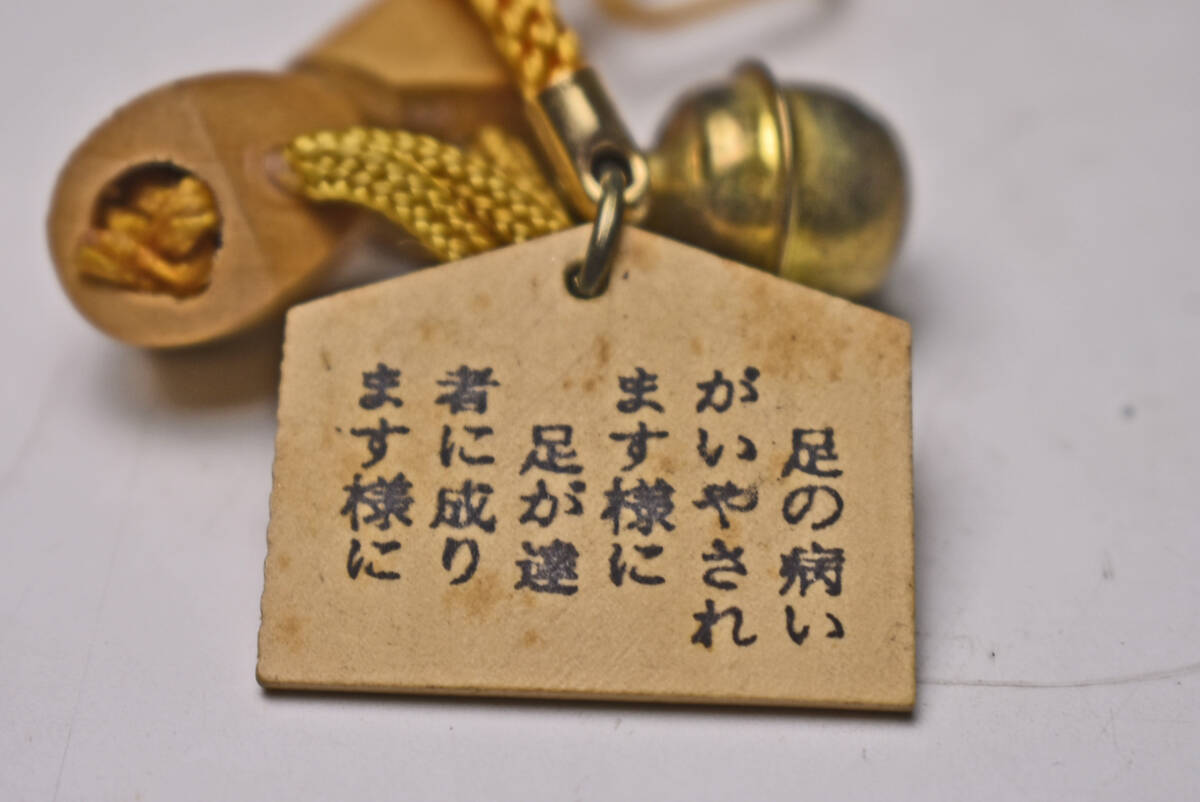 足の病い
がいやされ
ます様に
足が達
者に成り
ます様に